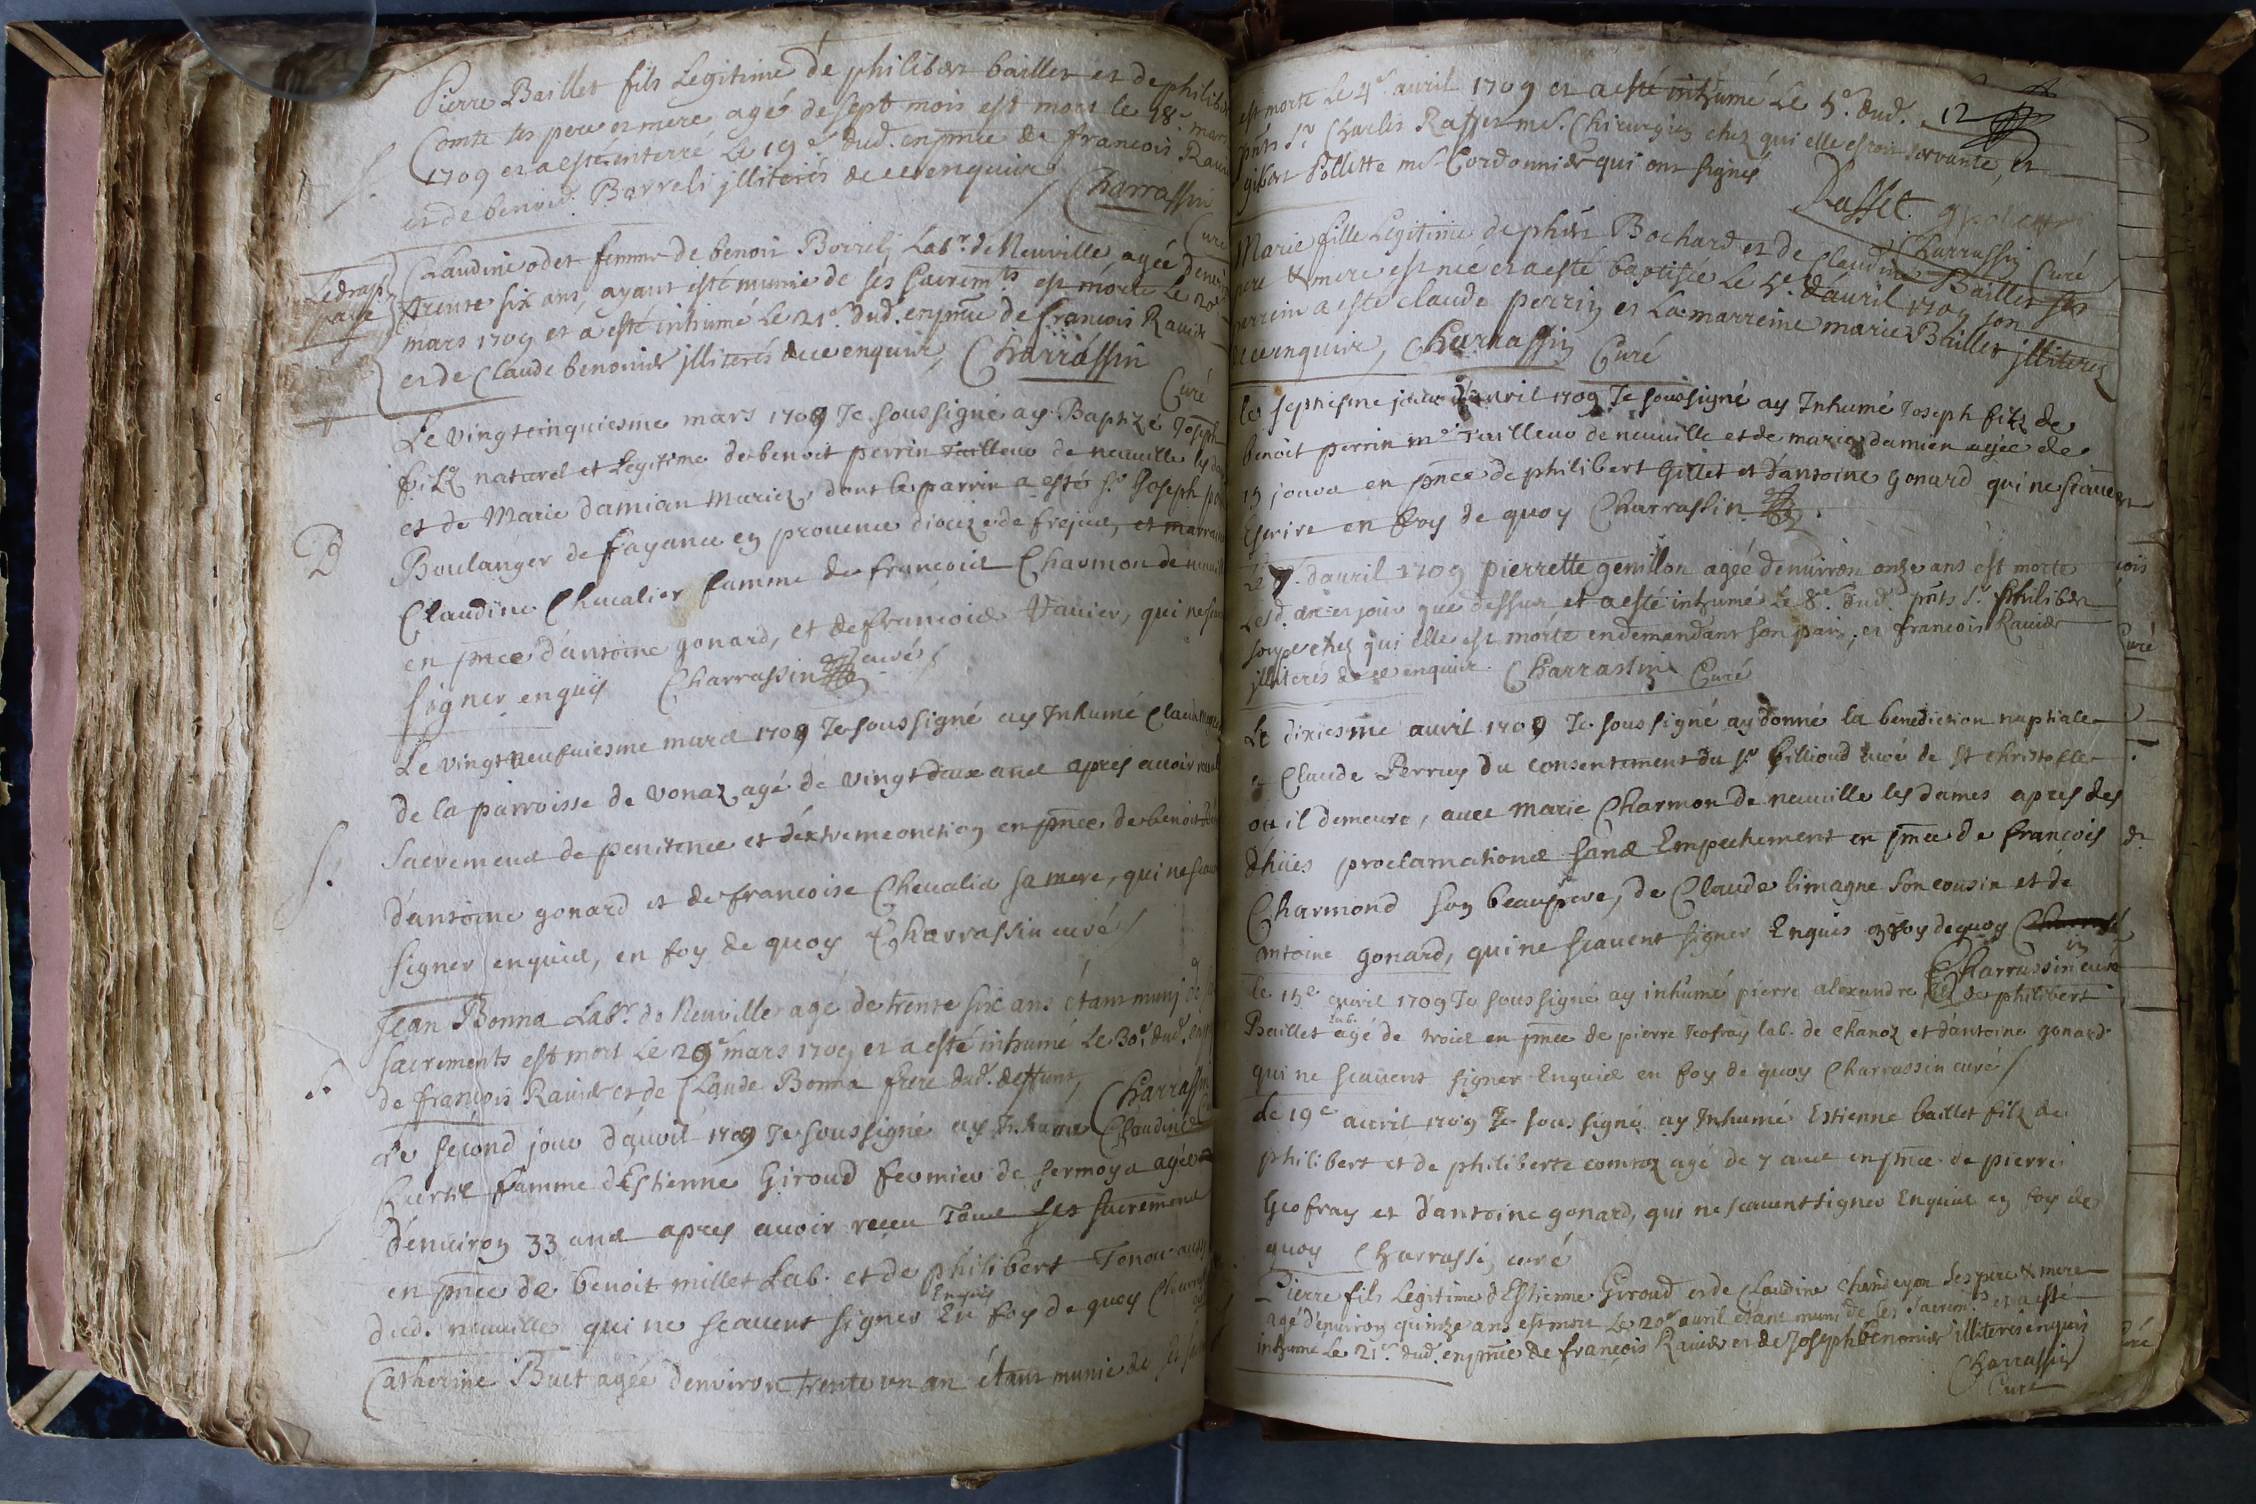 Pierre Baillet fils Legitime de philibert baillet et de philiber
Comte ses pere et mere agé de sept mois est mort le 18e mars
1709 et a esté enterré Le 19e dud. en pnce de francois Ravie
et de benoid. Borrels jlliterés de ce enquis
Charrassin
Curé
S.
Claudine odet femme de benoit Borrelj Labr. de Neuville agée denvir
trente six ans, ayant esté munie de ses sacremts est morte le 20e
mars 1709 et a esté inhumé Le 21e dud. en pnce de francois Ravier
et de Claude benonier jlliterés de ce enquis, Charrassin
Curé
Le drap
payé
Le vingtcinquiesme mars 1709 Je soussigné ay Baptizé Joseph
filz naturel et Legitime de benoit perrin Tailleur de neuville les da
et de Marie damian Mariez, dont le parrin a esté sr Joseph
Boulanger de fayance en provence dioceze de frejus, et marraine
Claudine Chevalier famme de francois Charmon de neuvill
en pnce d'antoine gonard, et de francois Ravier, qui ne sca
signer enquis Charrassin curé
B
Le vingtneufviesme mars 1709 Je soussigné ay Inhumé Claude
de la parroisse de vonaz agé de vingt deux ans apres avoir receu
sacremens de penitence et d'extremeonction en pnce de benoit
d'antoine gonard et de francoise Chevalier sa mere, qui ne scav
signer enquis, en foy de quoy Charrassin curé
S.
Jean Bonna Labr. de Neuville agé de trente six ans étant munj de
sacrements est mort Le 29e mars 1709 et a esté inhumé Le 30e dud. en
de francois Ravier et de Claude Bonna frere dud. deffunt, Charrassin
S.
Le second jour d'avril 1709 Je soussigné ay Inhumé Claudine
Curtil famme d'Estienne Giroud fermier de sermoya agée
d'environ 33 ans apres avoir receu Tous ses sacremens
en pnce de benoit millet Lab. et de philibert Tenou aussi
dud. neuville qui ne scavent signer Enquis En foy de quoy Charrass
Catherine Buet agée denviron trente un an étant munie de
est morte Le 4e avril 1709 et a esté inhumé Le 5e dud. 12
pnts Sr Charles Rasset mr. Chirurgien chez qui elle estoit servante, et
gibert Pollette mr Cordonnier qui ont signés
Rasset
Charrassin
Curé
Marie fille Legitime de phibr Bochard et de Claudine Baillet ses
pere & mere est née et a esté baptisée Le 5e d'avril 1709 son
perrein a esté claude perrin et La marreine marie Baillet jlliterez
de ce enquis, Charrassin Curé
le septiesme jour d'avril 1709 Je soussigné ay Inhumé Joseph filz de
benoit perrin me Tailleur de neuville et de marie damien agée de
15 jours en pnce de philibert Gillet et d'antoine gonard qui ne scavent
Escrire en foy de quoy Charrassin
Le 7e d'avril 1709 pierrette genillon agée denvirron onze ans est morte
Lesd. an et jour que dessus et a esté inhumé Le 8e dud. pnts Sr philiber
chez qui elle est morte en demandant son pain, et francois Ravier
jlliterés de ce enquis. Charrassin Curé
Le dixiesme avril 1709 Je soussigné ay donné la benediction nuptiale
a Claude Perruy du consentement du sr billioud curé de St Christofle
ou il demeure, avec Marie Charmon de neuville les dames apres les
dhües proclamations sans Empechement en pnce de francois
Charmond son beaufrere, de Claude limagne son cousin et de
antoine gonard, qui ne scavent signer Enquis en foy de quoy
Charrassin curé
le 15e avril 1709 Je soussigné ay inhumé pierre alexandre filz de philibert
Baillet lab. agé de trois en pnce de pierre Jeofray lab. de chanoz et d'antoine gonard
qui ne scavent signer Enquis en foy de quoy Charrassin curé
Le 19e avril 1709 Je soussigné ay Inhumé Estienne baillet filz de
philibert et de philiberte comtoz agé de 7 ans en pnce de pierre
Geofray et d'antoine gonard, qui ne scavent signer Enquis en foy de
quoy Charrassin curé
Pierre fils Legitime d'Estienne Giroud et de Claudine Chandeyon ses pere & mere
agé d'environ quinze ans est mort Le 20e avril étant muni de ses sacremts et a esté
inhumé Le 21e dud. en pnce de francois Ravier et de Joseph benonier illiteres enquis
Charrassin
Curé